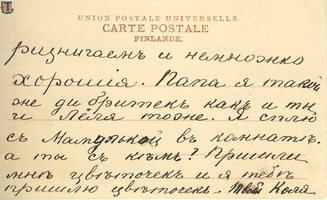 UNION POSTALE UNIVERSELLE
CARTE POSTALE
FINLANDE.
и немножко
хорошія. Папа я такой
же какъ и ты
и Лёля тоже. Я сплю
съ Мамочкой въ комнатѣ.
а ты съ кѣмъ? Пришли
мнѣ цвѣточекъ и я тебѣ
пришлю цвѣточекъ. твой Коля